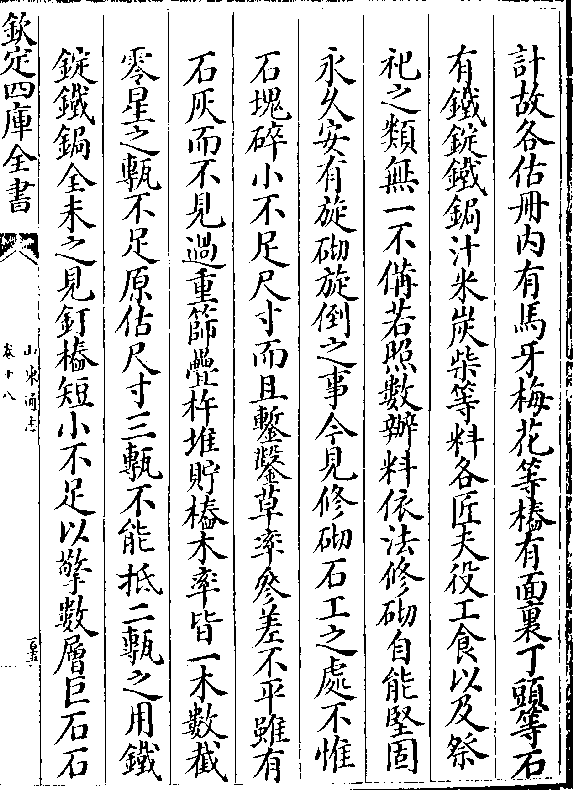 計故各估冊内有馬牙梅花等樁有面裏丁頭等石
有鐵錠鐵鋦汁米炭柴等料各匠夫役工食以及祭
祀之類無一不備若照數辦料依法修砌自能堅固
永久安有旋砌旋倒之事今見修砌石工之處不惟
石塊碎小不足尺寸而且鏨鑿草率參差不平雖有
石灰而不見過重篩疊杵堆貯樁木率皆一木數截
零星之甎不足原估尺寸三甎不能抵二甎之用鐵
錠鐵鋦全未之見釘樁短小不足以擎數層巨石石
欽定四庫全書
山東通志
卷十八